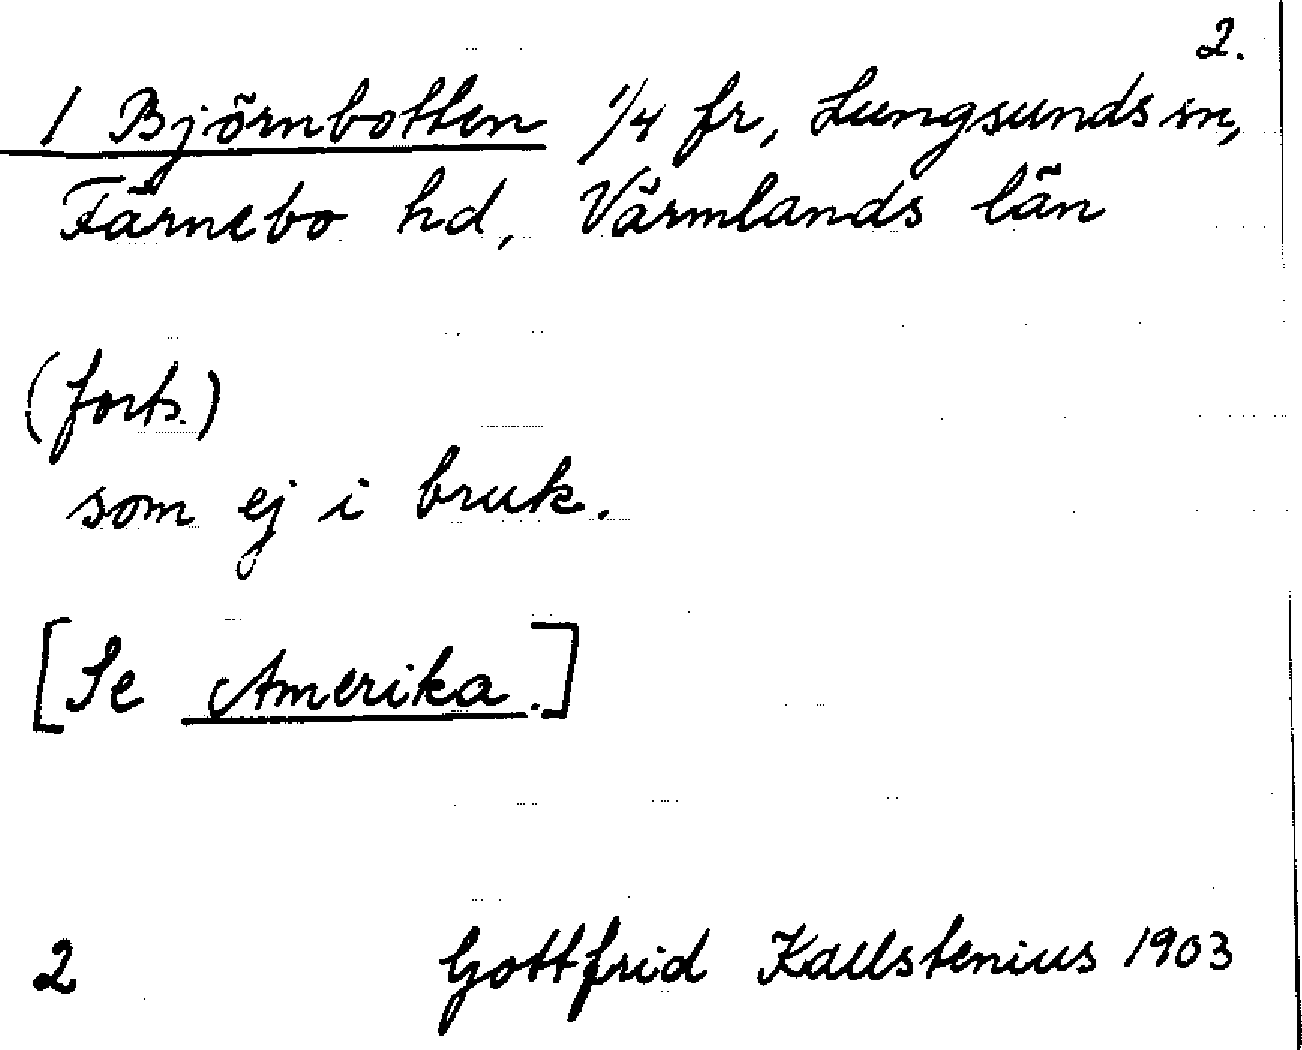 2.
1 Björnbotten 1/4 fr, Lungsunds sn,
Färnebo hd, Värmlands län
(forts.)
som ej i bruk.
[Se Amerika.]
2 Gottfrid Kallstenius 1903